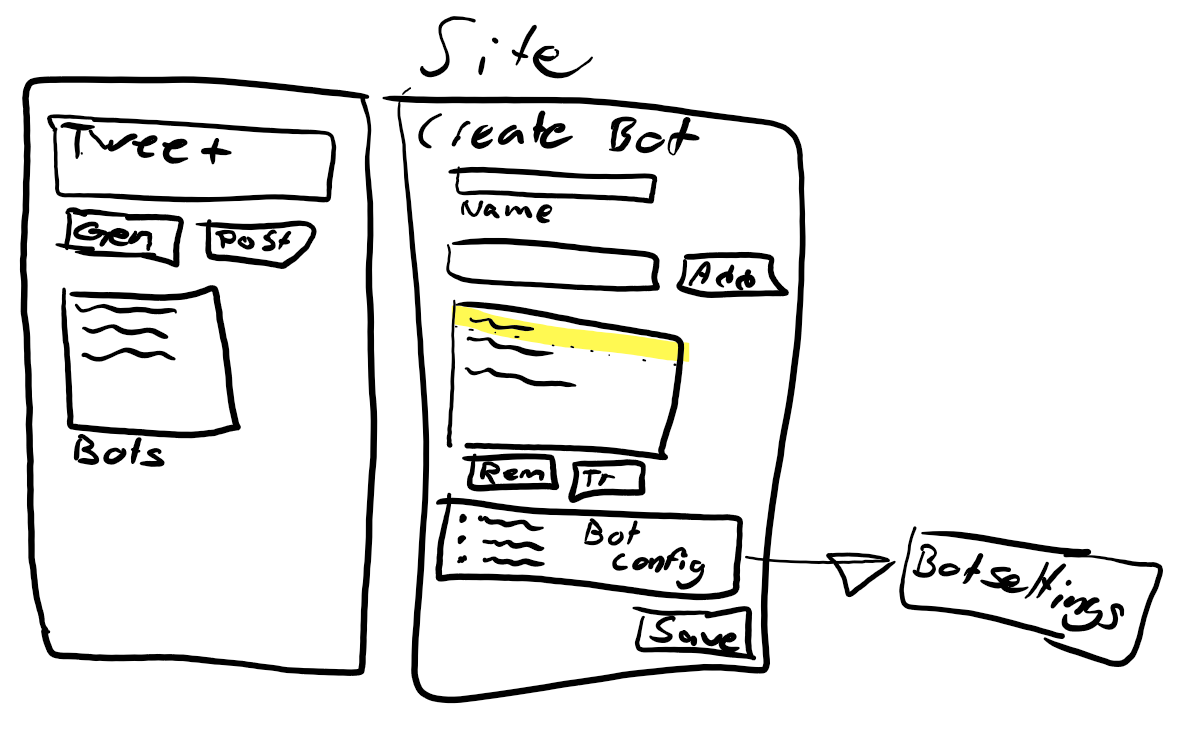 Site
Tweet
Gen
Post
Bots
Create Bot
Name
Add
Rem
Tr
Bot
config
Save
Botsettings